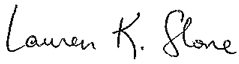 Lauren K. Stone